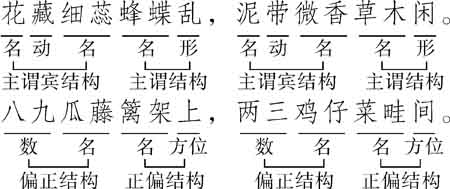 花藏细蕊蜂蝶乱，泥带微香草木闲。
名 动 名 名 形 名 动 名 名 形
主谓宾结构 主谓结构 主谓宾结构 主谓结构
八九瓜藤篱架上，两三鸡仔菜畦间。
数 名 名 方位 数 名 名 方位
偏正结构 正偏结构 偏正结构 正偏结构